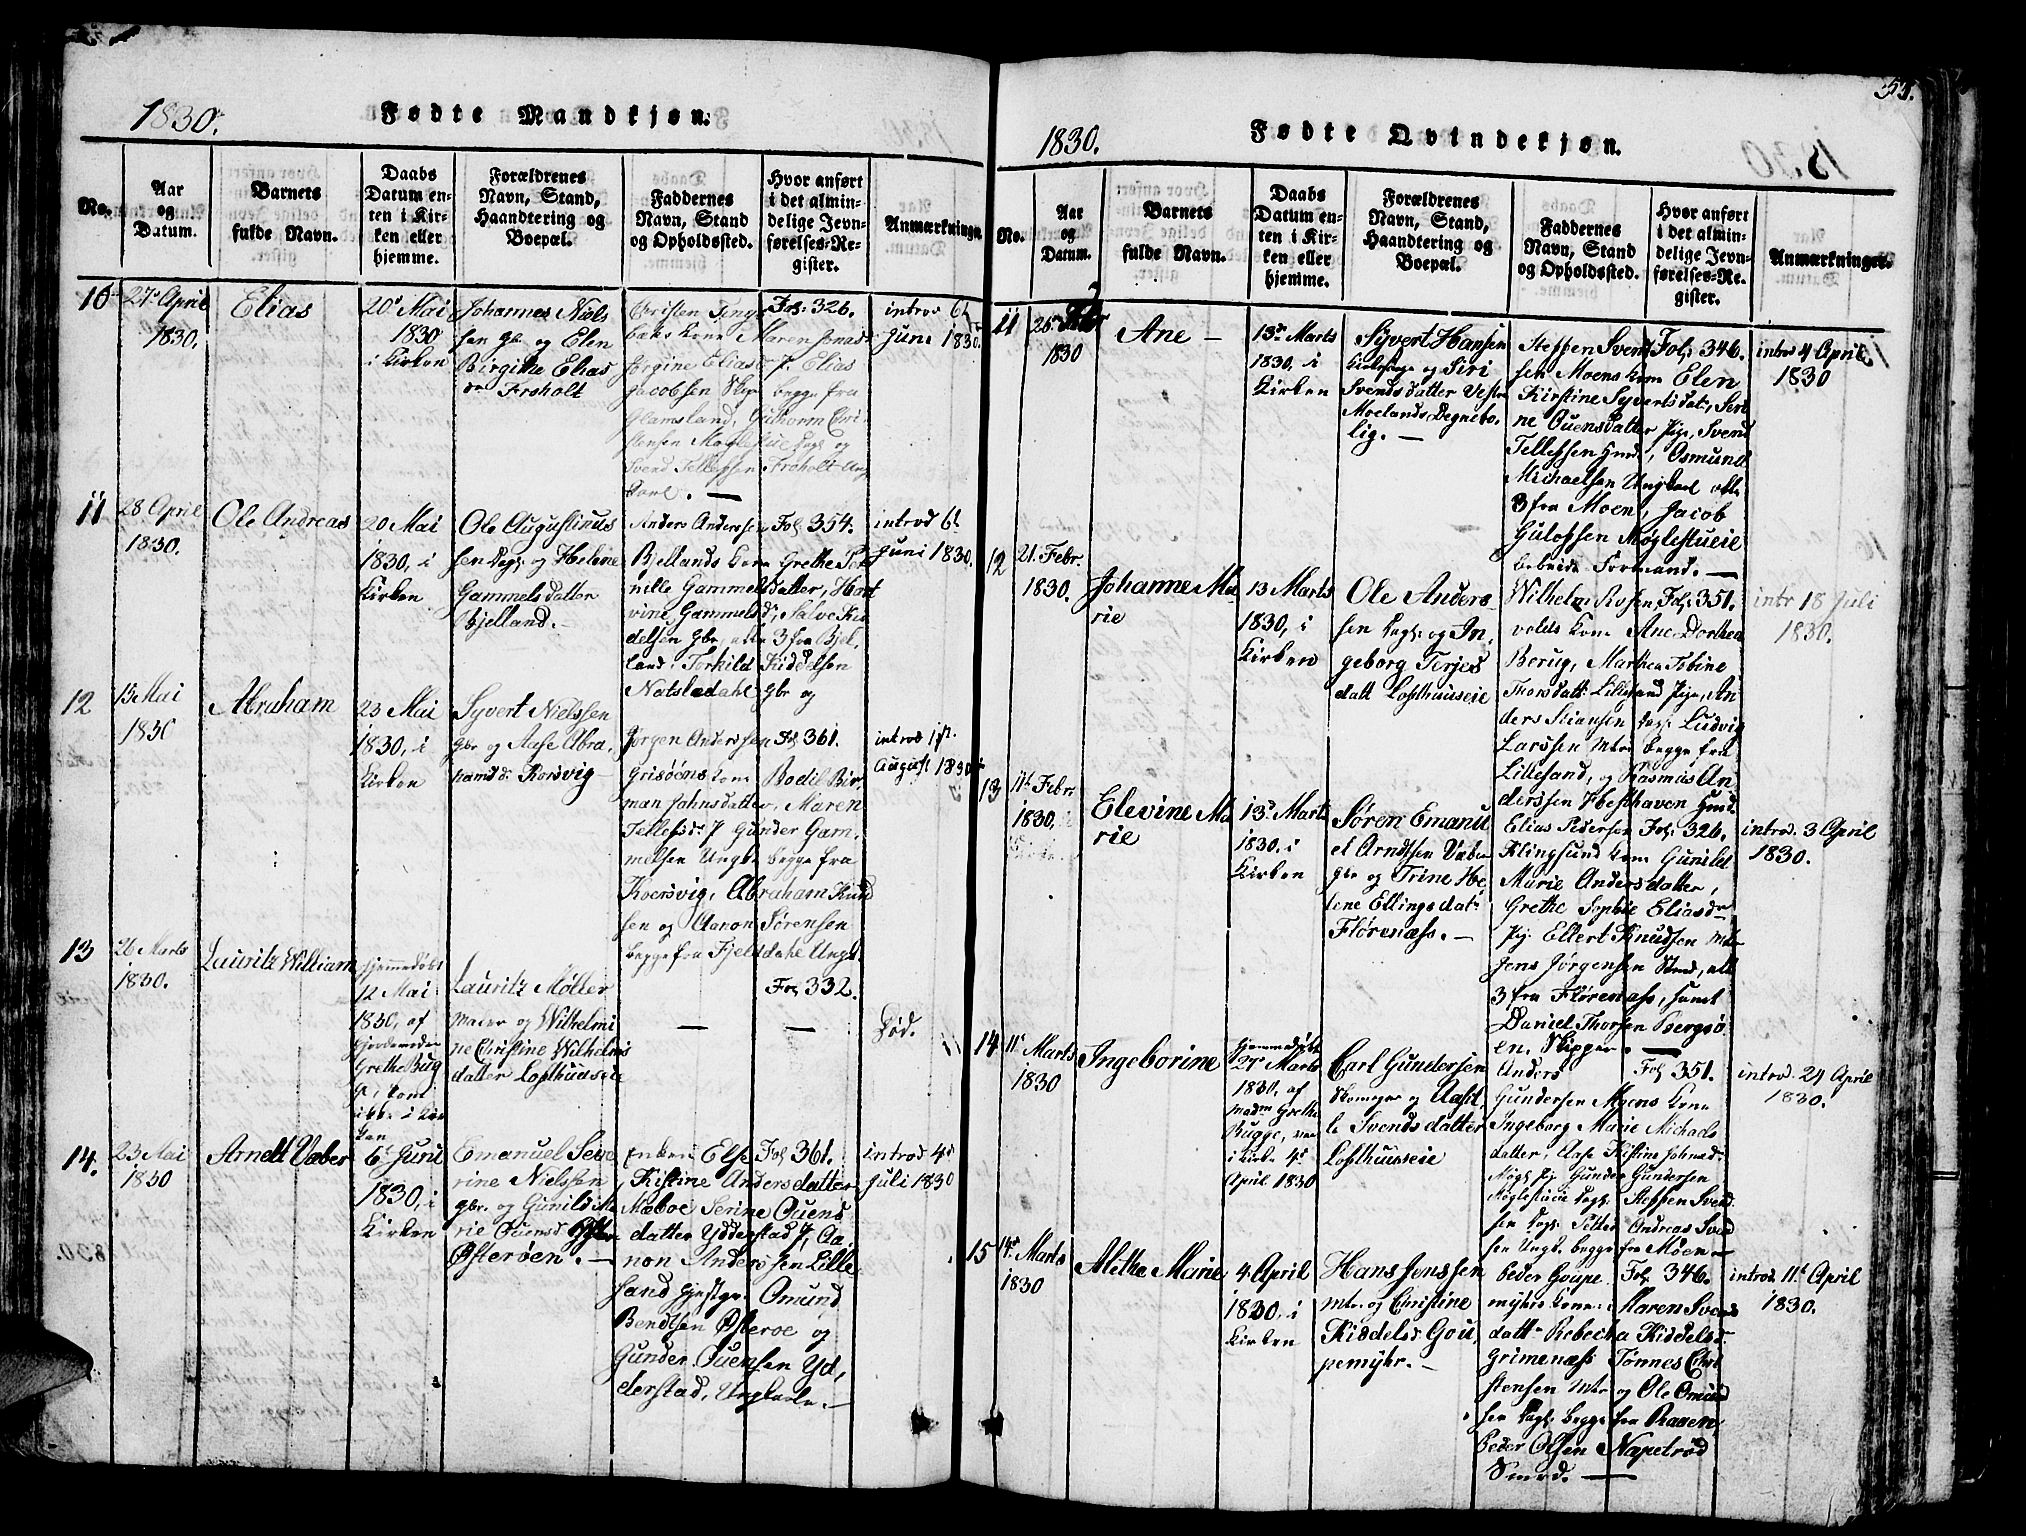 1830.
Fødte Mandkjøn.
No.
Aar og Datum.
Barnets fulde Navn.
Daabs Datum enten i Kirken eller hjemme.
Forældrenes Navn, Stand, Haandtering og Boepæl.
Faddernes Navn, Stand og Opholdssted.
Hvor anført i det almindelige Jevnførelses-Register.
Anmærkninger.
10
27de April
1830.
Elias
20de Mai
1830
i Kirken
Johannes Niels
sen Gbr og Elen
Birgithe Elias
dr Froholt
Christen Tingsaks Kone Maren Jonasdr
Jørgine Eliasdr P. Elias
Jacobsen Skip begge fra
Glamsland, Guthorm Chri
stensen Møglestue Dags og
Svend Tellefsen Froholt Ung
karl. —
Fol: 326.
introd 6t
Juni 1830.
11
28 April
1830.
Ole Andreas
20 Mai
1830, i
Kirken
Ole Augustinus
sen Dags og Helene
Gammelsdatter
Bjelland. -
Anders Anderssen
Bjellands Kone Grethe Per
nille Gammelsdatter,
vine Gammelsd, Salve Kid
delsen Gbr, alle 3 fra Bjel
land, Torkild Kiddelsen
Natsledahl Gbr og
Fol 354.
introd 6t
Juni 1830.
12
15 Mai
1830
Abraham
23 Mai
1830, i
Kirken
Syvert Nielssen
Gbr og Aase Abra
hamsd: Korsvig —
Jørgen Anderssen
Grisøens Kone Bodil Bir
man Johnsdatter, Maren
Tellefsdr P Gunder Gam
melsen Ungk. begge fra
Koersvig, Abraham Knud
sen og Aanon Sørensen
begge fra Fjeldsdahl Ungk.
Fol 361.
introd 1st
August 1830
13
26 Marts
1830.
Lauritz William
hjemmedøbt
12 Mai
1830, af
Gjordemoder
Grethe Bug
ge, kom
ikke i Kir
ken
Lauritz Møller
Maler og Wilhelmi
ne Christine Wilhelms
datter Lofthuuseie
—
Fol 332.
—
Død.
14.
23 Mai
1830
Arnelt Væber
6t Juni
1830, i
Kirken
Emanuel Seve
rine Nielssen
Gbr. og Gunild Ma
rie Ouensd.
Østerøen. —
Enken Else
Kistine Andersdatter
Mæboe Serine Ouens
datter Ydderstad P, Aa
non Anderssen Lille
sand Gjestgr. Omund
Bendtsen Østerøe og
Gunder Ouensen Yd,
derstad, Ungkarle. —
Fol 361.
introd 4de
Juli 1830
55.
1830.
Fødte Qvindekjøn.
No.
Aar og Datum.
Barnets fulde Navn.
Daabs Datum enten i Kirken eller hjemme.
Forældrenes Navn, Stand, Haandtering og Boepæl.
Faddernes Navn, Stand og Opholdssted.
Hvor anført i det almindelige Jevnførelses-Register.
Anmærkninger.
11
26de Febr
1830
Ane —
13de Marts
1830, i
Kirken
Syvert Hansen
Kirkesanger og Siri
Svendsdatter Vestre
Moelands Degnebo
lig. —
Steffen Svend
sen Moens Kone Elen
Kirstine Syvertsdat:, Seri
ne Ouensdatter Pige, Svend
Tellefsen Huusm, Osmund
Michaelsen Ungkarl alle
3 fra Moen, Jacob
Gulofssen Møglestueie
Formand. —
Fol 346.
introd 4 April
1830
12
21. Febr.
1830.
Johanne Ma
rie
13 Marts
1830, i
Kirken
Ole Anders
sen Dags og In
geborg Terjes
datt Lofthuuseie
Wilhelm
volds Kone Ane Dorthea
Berug, Marthea Tobine
Thorsdatt: Lillesand Pige, An
ders Stiansen Dags Ludvig
Larssen Mtr begge fra
Lillesand, og Rasmus An
derssen Hesthaven Huusm
Fol: 351.
intr 18 Juli
1830.
13
11t Febr.
1830.
Elevine Ma
rie
13de Marts
1830. i
Kirken
Søren Emanu
el Arndtsen Væber
Gbr og Trine He
lene Ellingsdat:
Florenæss. —
Elias Pedersen
Klingsund Kone Gunild
Marie Andersdatter,
Grethe Sophie Eliasdr
Pig. Ellert Knudsen Mtr
Jens Jørgensen Smed, alle
3 fra Florenæss, samt
Daniel Thorsen Bergsø
en, Skipper. —
Fol: 326.
introd. 3 April
1830.
14
11t Marts
1830
Ingeborine
Hjemmedøbt
27de Marts
1830. af
Madm Grethe
Bugge, var
i Kirke 4de
April 1830
Carl Gundersen
Skomager og Aasil
le Svendsdatter
Lofthuuseie
Anders
Gundersen Moens Kone
Ingeborg Marie Michaels
datter, Aase Kistine Johnsd
Møgl: Pig Gunder Gundersen
Møglestueie Dags Steffen Svend
sen Dags Tellef Andreas Svend
sen Ungk. begge fra Moen —
Fol 351.
introd. 24 April
1830.
15
14de Marts
1830
Alethe Marie
4 April
1830, i
Kirken
Hans Jenssen
Mtr. og Christine
Kiddelsd: Gou
pemyhr. —
Peder Goupe
myhrs Kone Maren Svends
datt- Rebecka Kiddelsd
Grimenæss Tønnes Chri
stensen Mtr og Ole Omund
sen Dags begge fra Raaen,
Peder Olsen Napetrød
Smed. —
Fol 346.
introd. 11t April
1830.